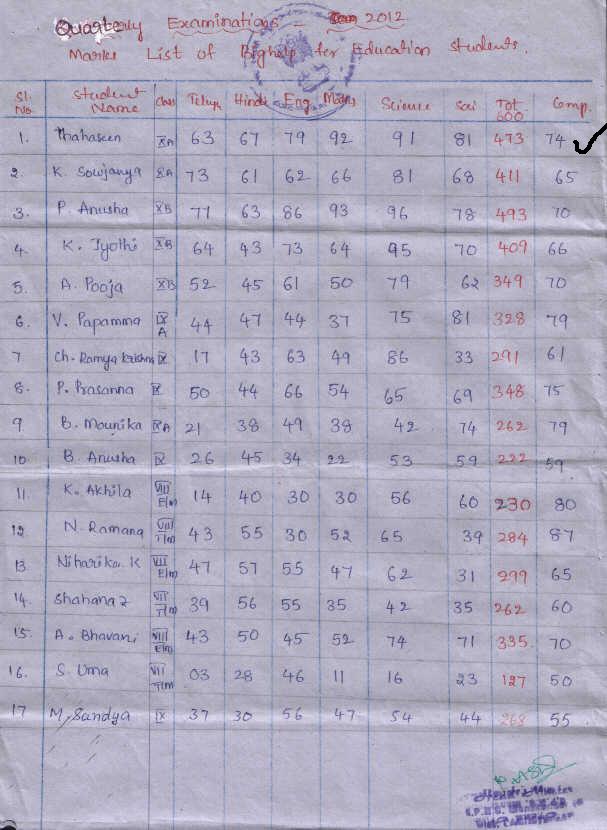 Quarterly Examinations - 2012
Marks List of Bighelp for Education Students.
Sl. No. Student Name Class Telugu Hindi Eng Maths Science Soi Tot 600 Comp.
1. Thahaseen XA 63 67 79 92 91 81 473 74
2. K. Sowjanya XA 73 61 62 66 81 68 411 65
3. P. Anusha XB 71 63 86 93 96 78 493 70
4. K. Jyothi XB 64 43 73 64 95 70 409 66
5. A. Pooja XB 52 45 61 50 79 62 349 70
6. V. Papamma IX A 44 47 44 37 75 81 328 79
7 Ch. Ramya Krishna IX 17 43 63 49 86 33 291 61
8. P. Prasanna IX 50 44 66 54 65 69 348 75
9 B. Mounika IXA 21 38 49 38 42 74 262 79
10 B. Anusha IX 26 45 34 22 53 59 222 59
11. K. Akhila VIII E/m 14 40 30 30 56 60 230 80
12 N. Ramana VIII T/m 43 55 30 52 65 39 284 87
13 Niharika. K VII E/m 47 57 55 47 62 31 299 65
14. Shahana z VII T/m 39 56 55 35 42 35 262 60
15. A. Bhavani VIII E/m 43 50 45 52 74 71 335 70
16. S. Uma VII T/m 03 28 46 11 16 23 127 50
17 M. Sandya IX 37 30 56 47 54 44 268 55